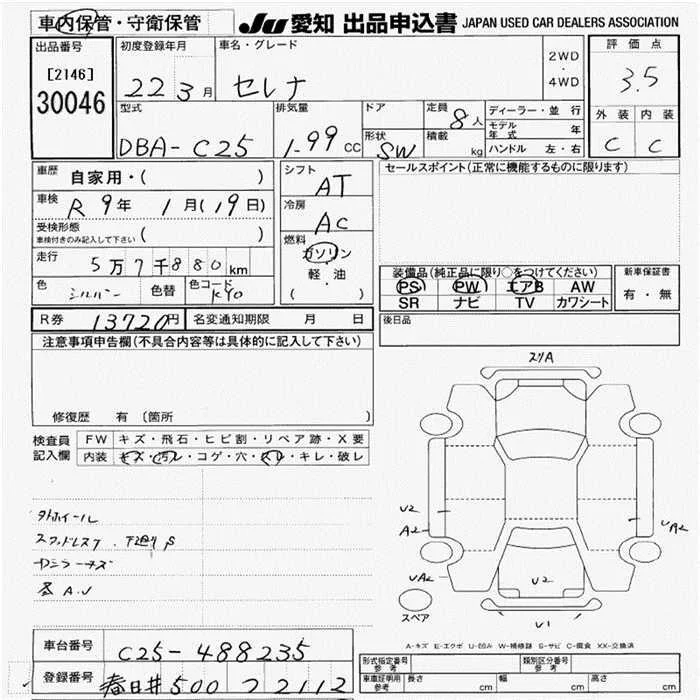 車内保管・守衛保管
JU 愛知 出品申込書 JAPAN USED CAR DEALERS ASSOCIATION
出品番号
[2146]
30046
初度登録年月
22 3月
車名・グレード
セレナ
2WD
・
4WD
評価点
3.5
外装 内装
C C
型式
DBA-C25
排気量
1.99 CC
ドア
形状
SW
定員
8人
積載
kg
ディーラー・並行
モデル年式 年
ハンドル 左・右
車歴
自家用・( )
車検
R 9年 1月(19日)
受検形態
車検付きのみ記入して下さい ( )
走行
5万7千880km
色
シルバー
色替
色コード
KY0
シフト
AT
冷房
AC
燃料
ガソリン
・
軽油
( )
セールスポイント(正常に機能するものに限ります)
装備品(純正品に限り○をつけてください)
PS PW エアB AW
SR ナビ TV カワシート
新車保証書
有・無
R券 13720円 名変通知期限 月 日
後日品
注意事項申告欄(不具合内容等は具体的に記入して下さい)
修復歴 有 〔箇所
検査員
記入欄
FW キズ・飛石・ヒビ割・リペア跡・X要
内装 キズ・汚レ・コゲ・穴・スレ・キレ・破レ
スリA
U2
A2
UA2
UA2
U2
U1
スペア
A-キズ E-エクボ U-凹み W-補修跡 S-サビ C-腐食 XX-交換済
車台番号
C25-488235
登録番号
春日井500 フ 2112
形式指定番号
参考
類別区分番号
参考
車庫証明用
参考
長さ cm 幅 cm 高さ cm